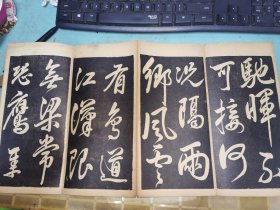 馳暉不
可接何
况隔兩
鄉風雲
有鳥道
江漢限
無梁常
恐鷹隼